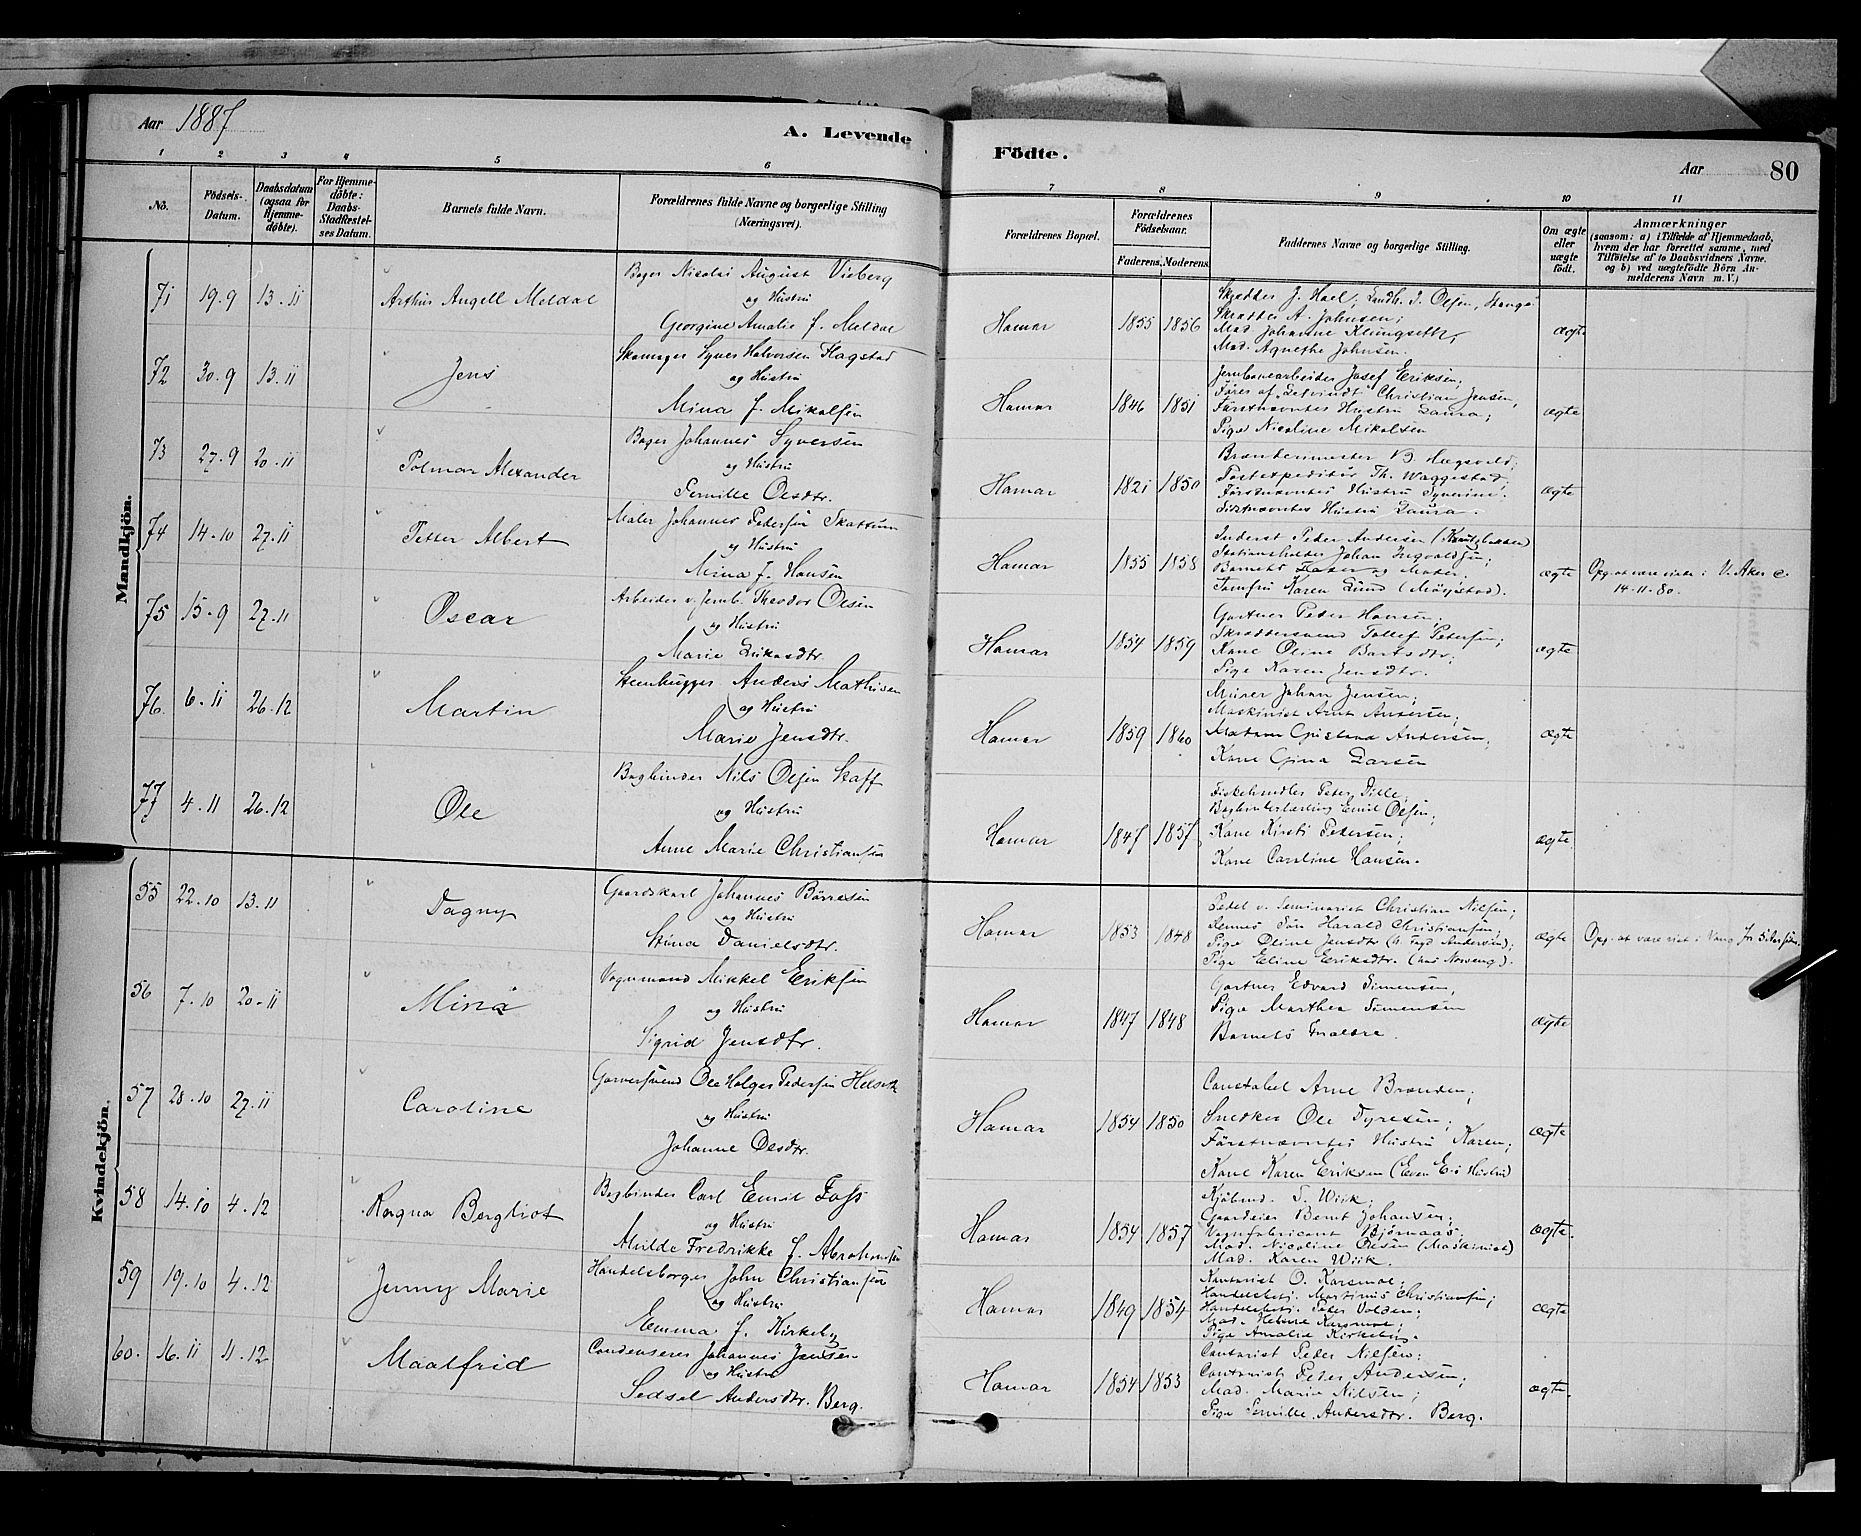 Aar 1887
A. Levende
Födte.
Aar 80
1 2 3 4 5 6 7 8 9 10 11
No.
Födsels-Datum.
Daabsdatum (ogsaa for Hjemme-döbte).
For Hjemme-döbte: Daabs-Stadfæstel-ses Datum.
Barnets fulde Navn.
Forældrenes fulde Navne og borgerlige Stilling (Næringsvei).
Forældrenes Bopæl.
Forældrenes Födselsaar.
Faderens. Moderens.
Faddernes Navne og borgerlige Stilling.
Om ægte eller uægte födt.
Anmærkninger
(saasom: a) i Tilfælde af Hjemmedaab,
hvem der har forrettet samme, med
Tilföielse af to Daabsvidners Navne,
og b) ved uægtefödte Börn An-
melderens Navn m. V.)
Mandkjön.
71 19.9 13.11 Arthur Angell Meldal
Bager Nicolai August Vieberg
og Hustru
Georgine Amalie f. Meldal
Hamar 1855 1856
Skrædder J. Hoel; Landh. J. Olsen, Stange
Skrædder A. Johnsen;
Mad. Johanne Klungseth,
Mad. Agnethe Johnsen.
ægte
72 30.9 13.11 Jens
Skomager Syver Halvorsen Flagstad
og Hustru
Mina f. Mikalsen
Hamar 1846 1851
Jernbanearbeider Josef Eriksen;
Christian Jensen,
Förstnævntes Hustru Laura;
Pige Nicoline Mikalsen
ægte
73 27.9 20.11 Polmar Alexander
Bager Johannes Syversen
og Hustru
Pernille Olsdtr.
Hamar 1821 1850
B. Hagsveld;
Postexpeditör Th. Waggestad,
Förstnævntes Hustru Syverine.
Sidstnævntes Hustru Laura.
ægte
74 14.10 27.11 Petter Albert
Maler Johannes Pedersen Skattum
og Hustru
Mina f. Hansen
Hamar 1855 1858
Inderst Peder Andersen
Stationsholder Johan Ingvaldsen;
Barnets Fader og Moder;
Jomfru Karen Lund
ægte
Opg. at være viede i V. Aker
14-11-80.
75 15.9 27.11 Oscar
Arbeider v. Jernb. Theodor Olsen
og Hustru
Marie Lukasdtr.
Hamar 1854 1859
Gartner Peder Hansen;
Skræddersvend Tollef Petersen;
Kone Oline
Pige Karen Jensdtr.
ægte
76. 6.11 26.12 Martin
Stenhugger Anders Mathisen
og Hustru
Marie Jensdtr.
Hamar 1859 1860
Murer Johan Jensen;
Maskinist Arnt Andersen;
Madam Andersen;
Kone Gina Larsen
ægte
77 4.11 26.12 Ole
Bogbinder Nils Olsen Skaff
og Hustru
Anne Marie Christiansen
Hamar 1847 1857
Fiskehandler Peter Dille,
Emil Olsen;
Kone Kirsti Pedersen;
Kone Caroline Hansen.
ægte
Kvindekjön.
55 22.10 13.11 Dagny
Gaardskarl Johannes Börresen
og Hustru
Stina Danielsdtr.
Hamar 1853 1848
Pedel v. Seminariet Christian Nilsen;
Dennes Sön Harald Christiansen;
Pige Oline Jensdtr
Pige Eline Eriksdtr. (hos Norseng).
ægte
Opg. at være viet i Vang
56 7.10 20.11 Mina
Vognmand Mikkel Eriksen
og Hustru
Sigrid Jensdtr.
Hamar 1847 1848
Gartner Edvard Simensen,
Pige Marthea Simensen
Barnets Forældre.
ægte
57 28.10 27.11 Caroline
Garversvend Ole Holger Pedersen
og Hustru
Johanne Olsdtr.
Hamar 1854 1850
Constabel Arne Brænden;
Snedker Ole Dyresen;
Förstnævntes Hustru Karen;
Kone Karen Eriksen (Even E.s Hustru)
ægte
58 14.10 4.12 Ragna Bergliot
Bogbinder Carl Emil Foss
og Hustru
Milde Fredrikke f. Abrahamsen
Hamar 1854 1857
Kjöbmd. S. Wiik;
Gaardeier Bernt Johansen;
Vognfabricant Björnaas;
Mad. Nicoline Olsen (Maskinist)
Mad. Karen Wiik.
ægte.
59 19.10 4.12 Jenny Marie
Handelsborger John Christiansen
og Hustru
Emma f. Kirkeby
Hamar 1849 1854
Kontorist O. Karsmoe;
Handelsbetj. Martinus Christiansen;
Handelsbetj. Peder Volden;
Mad. Helene Karsmoe;
Pige Amalie Kirkeby.
ægte
60. 16.11 11.12 Maalfrid
Condenserer Johannes Jensen
og Hustru
Sedsel Andersdtr. Berg.
Hamar 1854 1853
Contorist Peder Nilsen;
Contorist Peder Andersen;
Mad. Marie Nilsen;
Pige Pernille Andersdtr. Berg.
ægte.